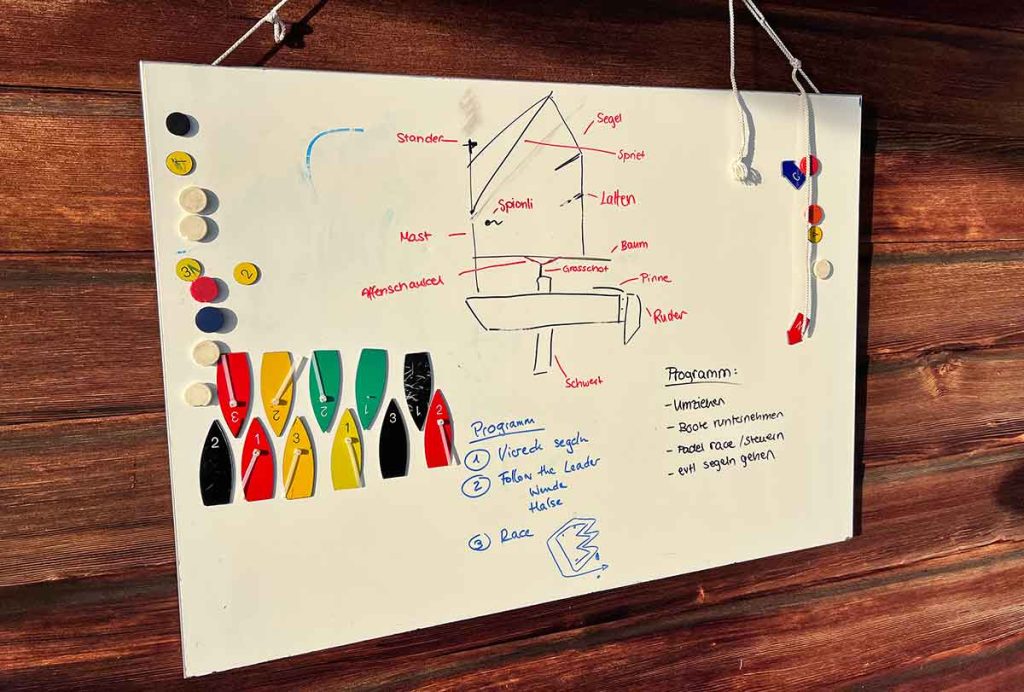 Stander
Segel
Spriet
Spionli
Latten
Mast
Baum
Affenschaukel
Grosschot
Pinne
Ruder
Schwert
Programm
1 Viereck segeln
2 Follow the Leader
Wende
Halse
3 Race
Programm:
- Umziehen
- Boote runternehmen
- Padel race / Steuern
- evtl segeln gehen
3
2
2
1
2
1
3
1
3
2
3
2